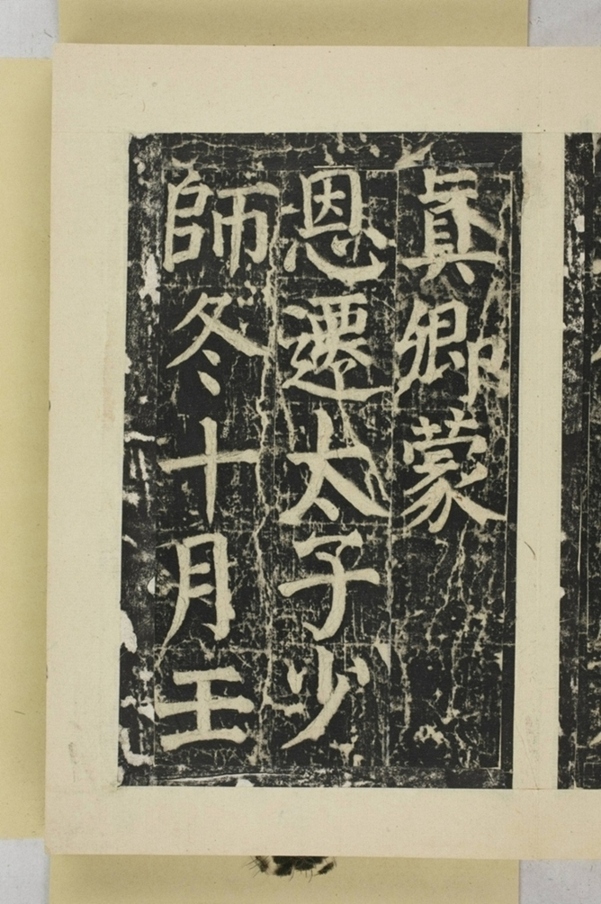 眞卿蒙
恩遷太子少
師冬十月壬